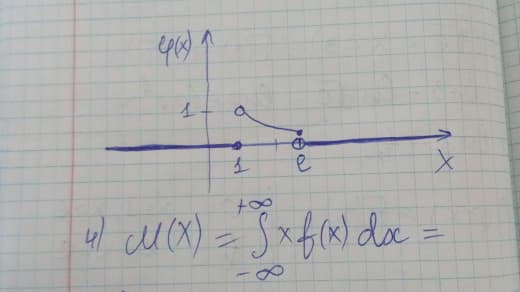 φ(x)
1
1 e x
4) M(X) = ∫ x f(x) dx =
+∞
-∞